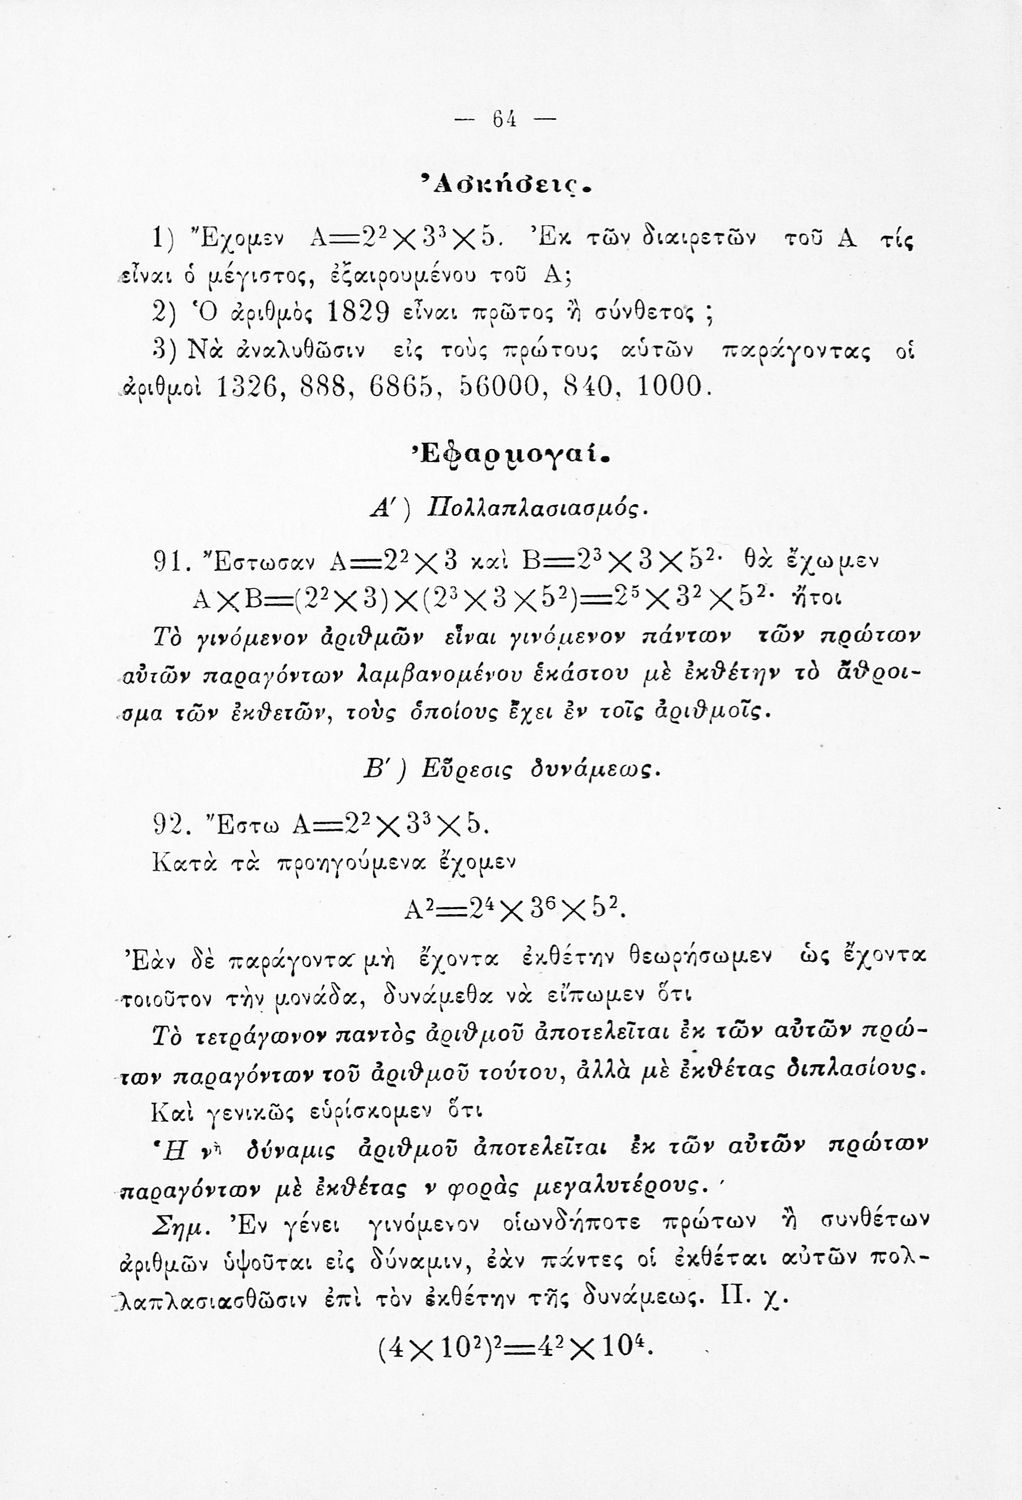 — 64 —
Ἀσκήσεις.
1) Ἔχομεν Α=2²×3³×5. Ἐκ τῶν διαιρετῶν τοῦ Α τίς
εἶναι ὁ μέγιστος, ἐξαιρουμένου τοῦ Α;
2) Ὁ ἀριθμὸς 1829 εἶναι πρῶτος ἢ σύνθετος ;
3) Νὰ ἀναλυθῶσιν εἰς τοὺς πρώτους αὐτῶν παράγοντας οἱ
ἀριθμοὶ 1326, 888, 6865, 56000, 840, 1000.
Ἐφαρμογαί.
Α΄) Πολλαπλασιασμός.
91. Ἔστωσαν Α=2²×3 καὶ Β=2³×3×5²· θὰ ἔχωμεν
Α×Β=(2²×3)×(2³×3×5²)=2⁵×3²×5²· ἤτοι
Τὸ γινόμενον ἀριθμῶν εἶναι γινόμενον πάντων τῶν πρώτων
αὐτῶν παραγόντων λαμβανομένου ἑκάστου μὲ ἐκθέτην τὸ ἄθροι-
σμα τῶν ἐκθετῶν, τοὺς ὁποίους ἔχει ἐν τοῖς ἀριθμοῖς.
Β΄) Εὕρεσις δυνάμεως.
92. Ἔστω Α=2²×3³×5.
Κατὰ τὰ προηγούμενα ἔχομεν
Α²=2⁴×3⁶×5².
Ἐὰν δὲ παράγοντα μὴ ἔχοντα ἐκθέτην θεωρήσωμεν ὡς ἔχοντα
τοιοῦτον τὴν μονάδα, δυνάμεθα νὰ εἴπωμεν ὅτι
Τὸ τετράγωνον παντὸς ἀριθμοῦ ἀποτελεῖται ἐκ τῶν αὐτῶν πρώ-
των παραγόντων τοῦ ἀριθμοῦ τούτου, ἀλλὰ μὲ ἐκθέτας διπλασίους.
Καὶ γενικῶς εὑρίσκομεν ὅτι
Ἡ νⁿ δύναμις ἀριθμοῦ ἀποτελεῖται ἐκ τῶν αὐτῶν πρώτων
παραγόντων μὲ ἐκθέτας ν φορὰς μεγαλυτέρους.
Σημ. Ἐν γένει γινόμενον οἱωνδήποτε πρώτων ἢ συνθέτων
ἀριθμῶν ὑψοῦται εἰς δύναμιν, ἐὰν πάντες οἱ ἐκθέται αὐτῶν πολ-
λαπλασιασθῶσιν ἐπὶ τὸν ἐκθέτην τῆς δυνάμεως. Π. χ.
(4×10²)²=4²×10⁴.